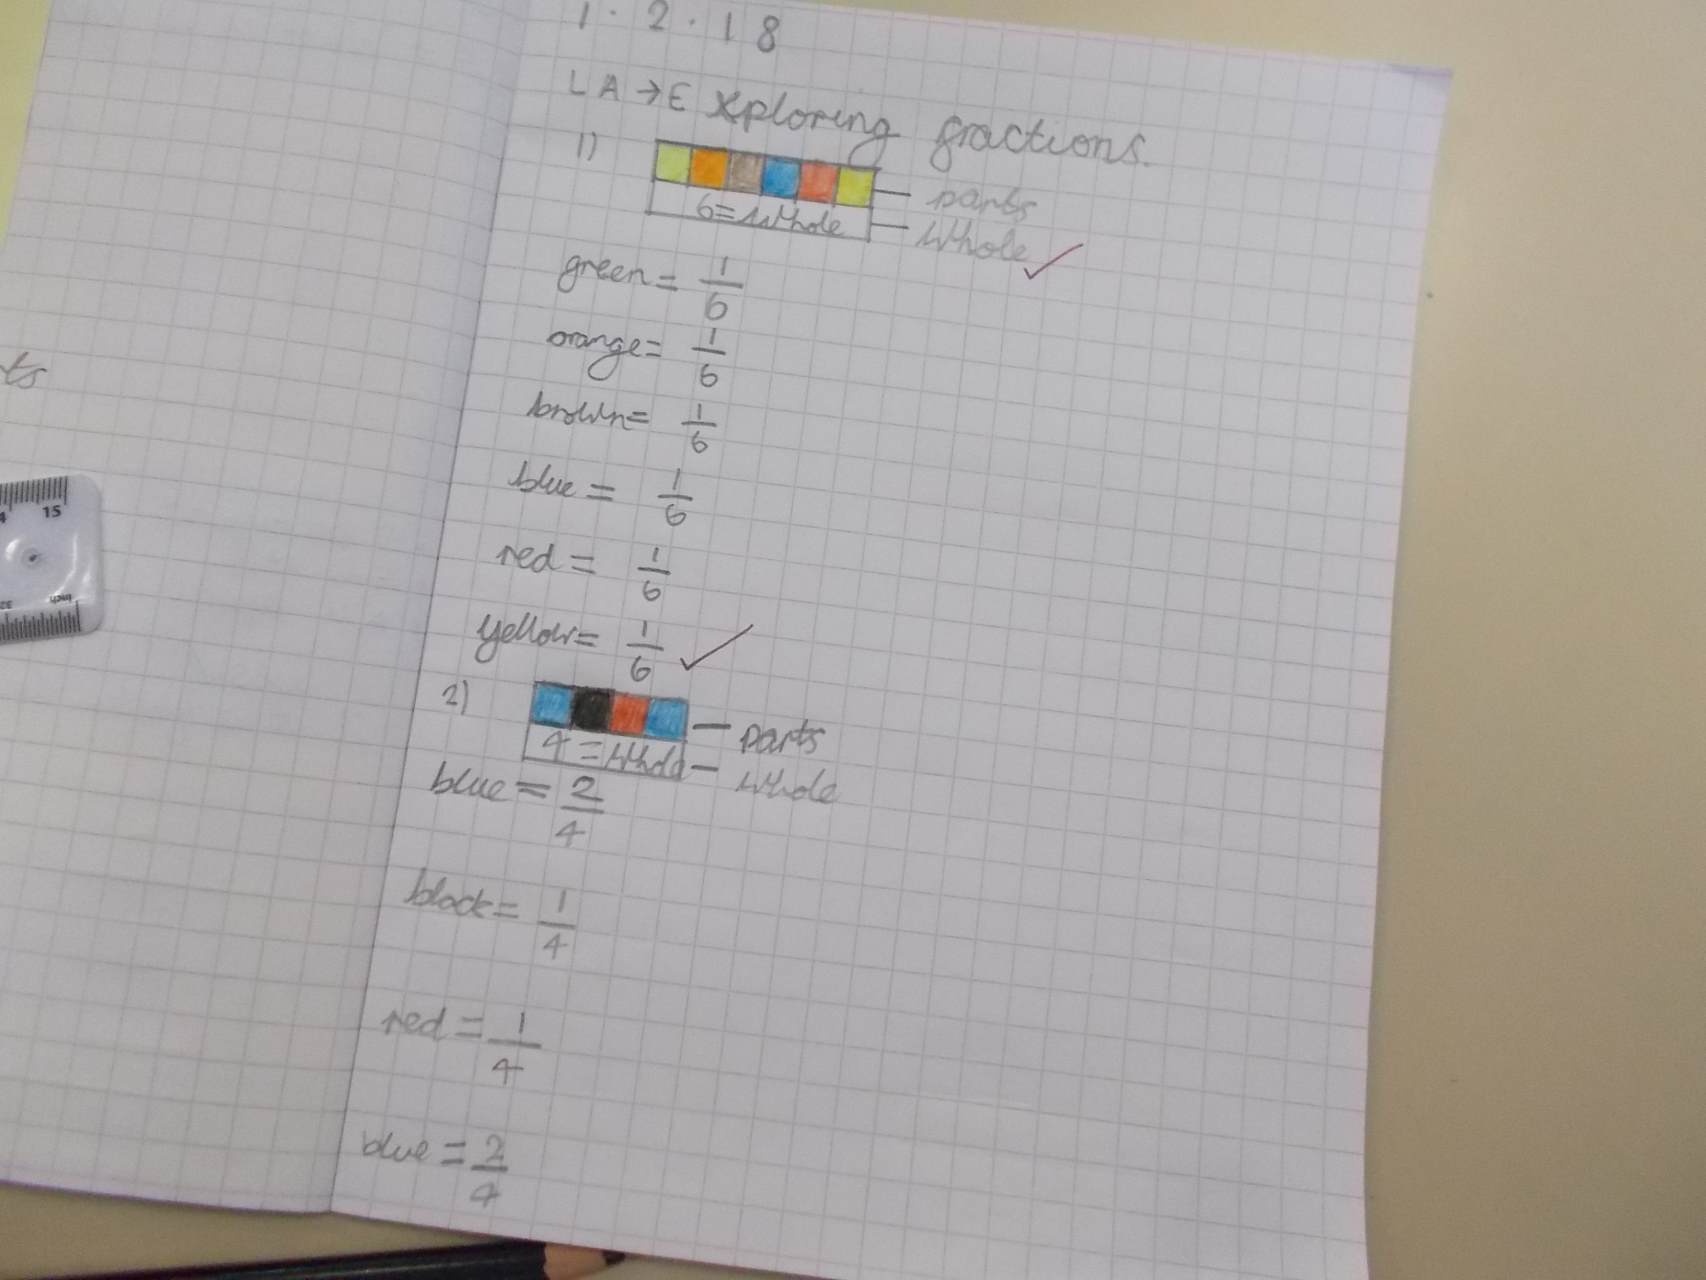 1.2.18
LA → Exploring fractions.
1)
parts
6=whole
whole
green = 1/6
orange = 1/6
brown = 1/6
blue = 1/6
red = 1/6
yellow = 1/6
2)
parts
4=whole
whole
blue = 2/4
black = 1/4
red = 1/4
blue = 2/4
ts
4 15
inch
32